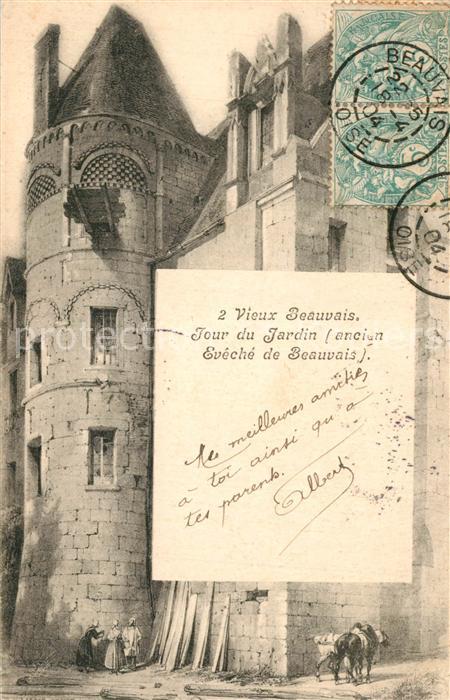 BEAUVAIS
OISE
2 Vieux Beauvais.
Tour du Jardin (ancien
Evêché de Beauvais).
Mes meilleures amitiés
à toi ainsi qu'à
tes parents.
Albert